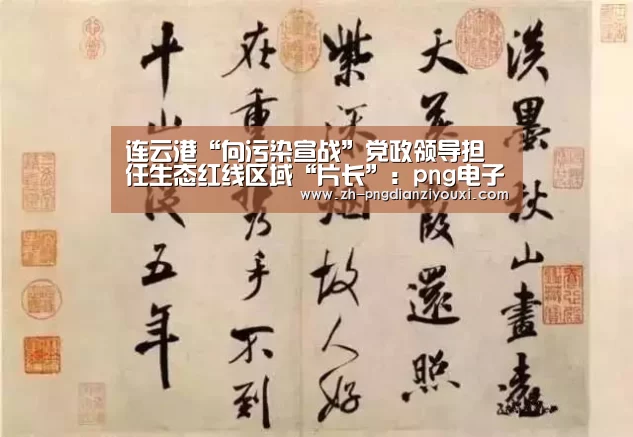 连云港“向污染宣战”党政领导担
任生态红线区域“片长”：png电子
www.zh-pngdianziyouxi.com
淡墨秋山畫遠
天暮霞還照
紫添煙故人好
在重攜手不到
平山謾五年